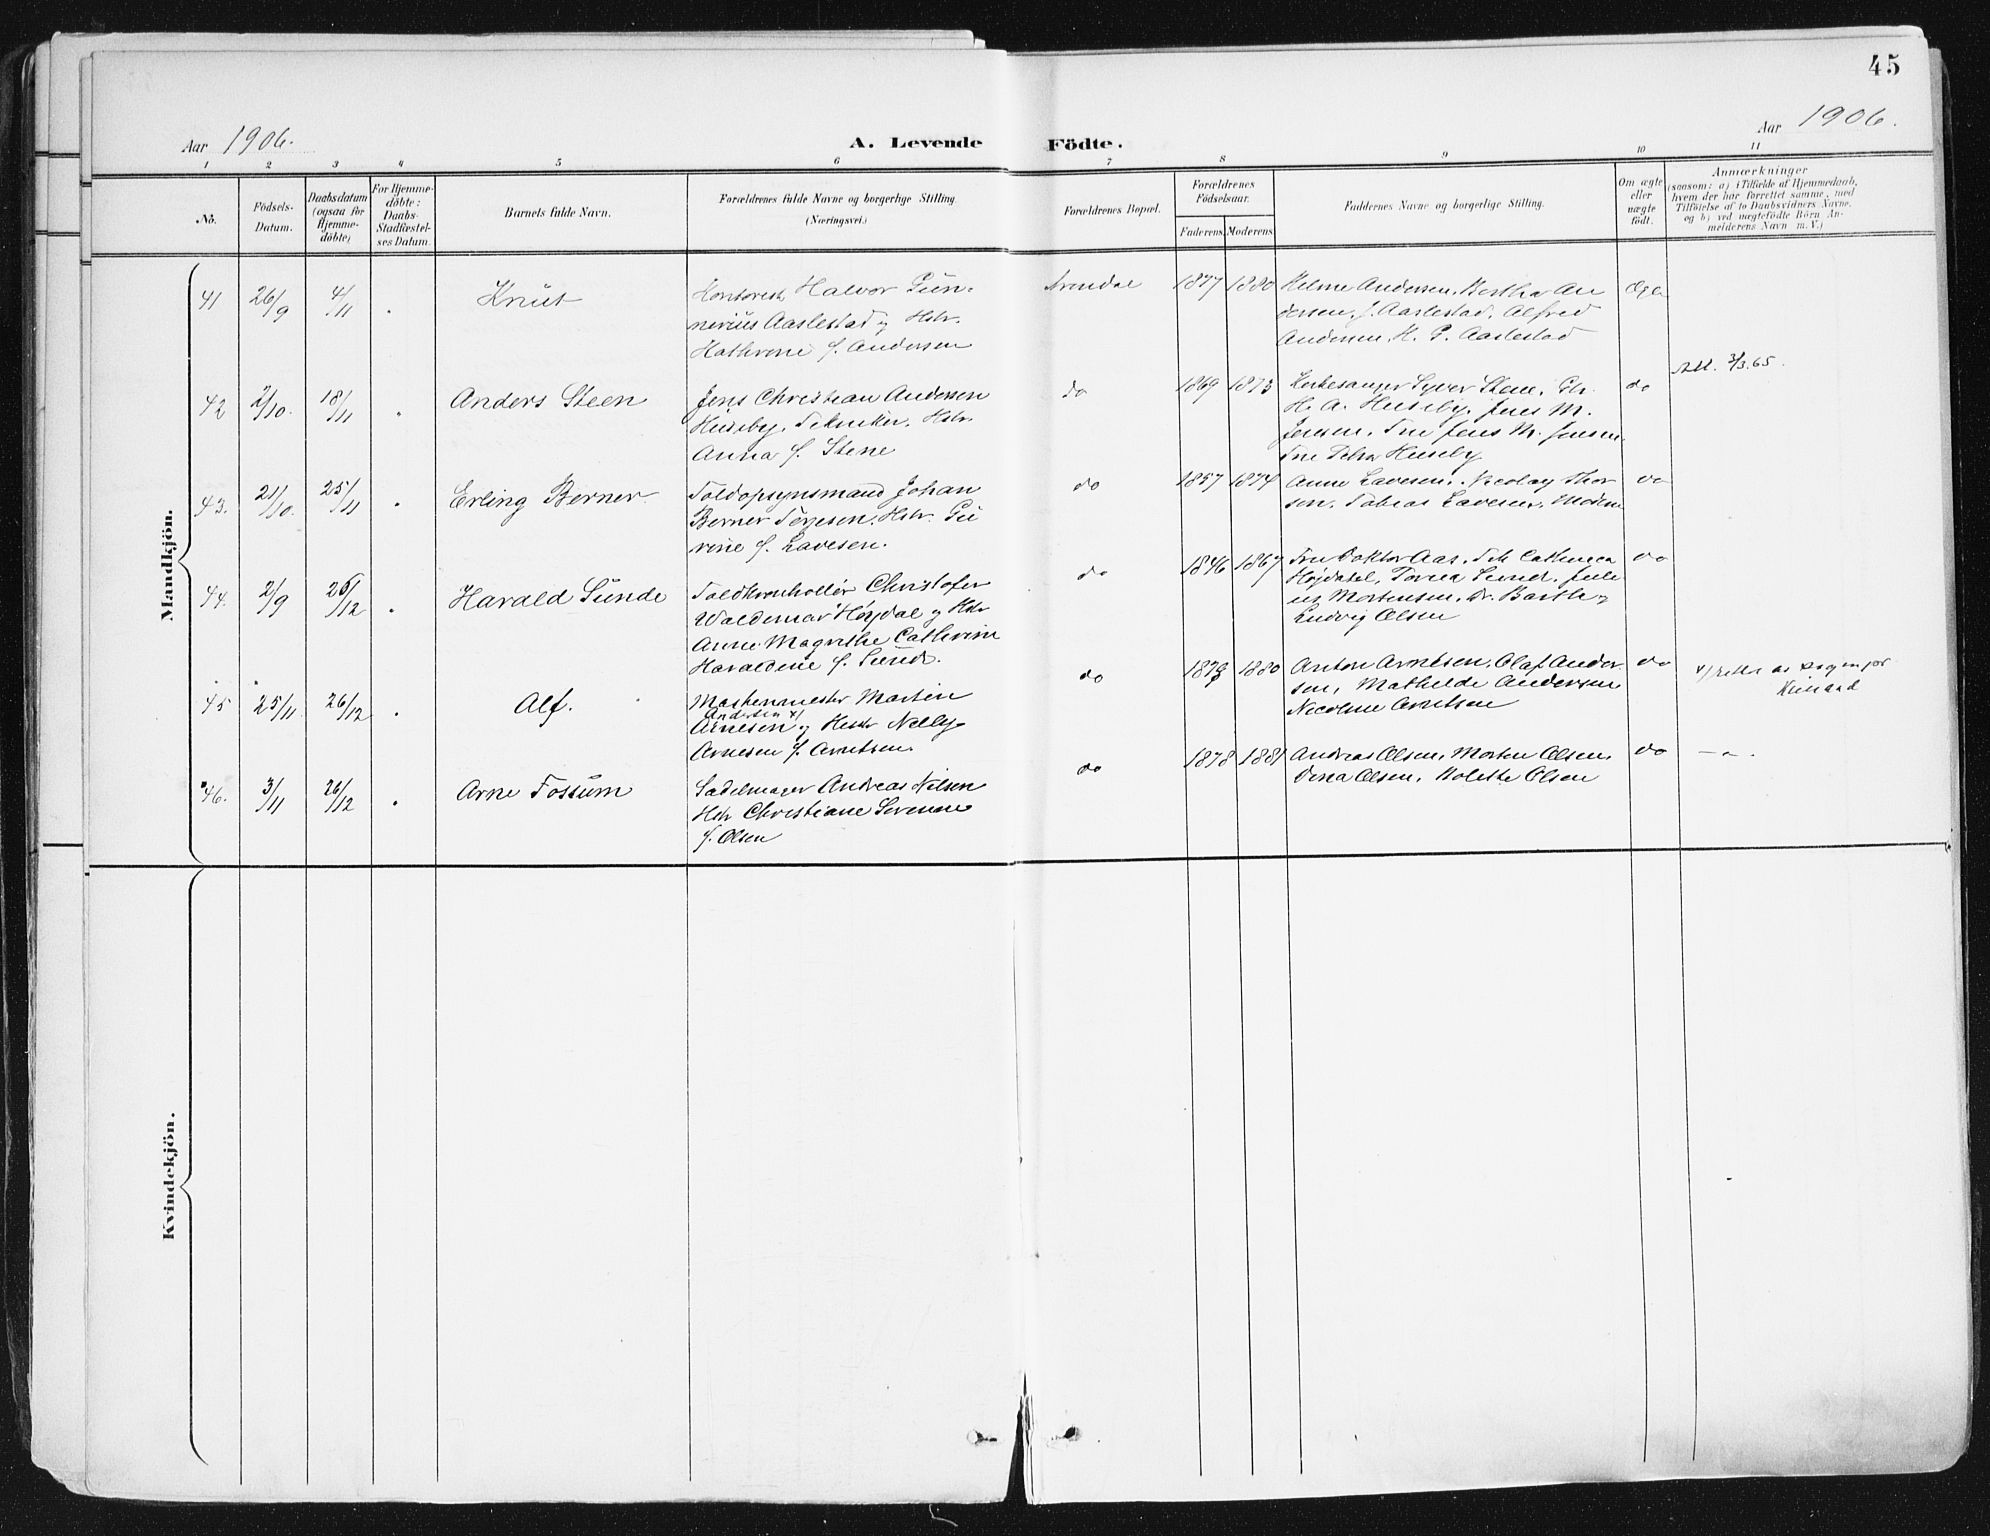 45
Aar 1906.
A. Levende Födte.
Aar 1906.
1 2 3 4 5 6 7 8 9 10 11
No.
Födsels-
Datum.
Daabsdatum
(ogsaa for
Hjemme-
döbte)
For Hjemme-
döbte:
Daabs-
Stadfæstel-
ses Datum.
Barnets fulde Navn.
Forældrenes fulde Navne og borgerlige Stilling.
(Næringsvei.)
Forældrenes Bopæl.
Forældrenes
Födselsaar.
Faderens. Moderens.
Faddernes Navne og borgerlige Stilling.
Om ægte
eller
uægte
födt.
Anmærkninger
(saasom: a) i Tilfælde af Hjemmedaab,
hvem der har forrettet samme, med
Tilföielse af to Daabsvidners Navne.
og b) ved uægtefödte Börn An-
melderens Navn m. V.)
Mandkjön.
41 26/9 4/11 Knut
Kontorist Halvor Gun-
nerius Aaslestad og Hstr.
Kathrine f. Andersen
Arendal 1877 1880
Andersen, Bertha An
dersen, J. Aaslestad, Alfred
Andersen, H. G. Aaslestad
Ægte
42 2/10. 18/11 Anders Steen
Jens Christian Andersen
Huseby, Tekniker, Hstr.
Anna f. Stene
do 1869 1873
Kirkesanger Syver Stene,
H. A. Huseby, Jens M.
Jensen, Fru Jens M. Jensen,
Fru Petra Huseby
do
Att. 3/3.65.
43. 21/10. 25/11 Erling Berner
Toldopsynsmand Johan
Berner Terjesen, Hstr. Gu
rine f. Lavesen.
do 1857 1874
Anne Lavesen, Nicolay Thor
sen, Tobias Lavesen, Moderen
do
44. 2/9 26/12 Harald Sunde
Toldkontrollør Christofer
Waldemar Højdal og Hstr
Anne Magrethe Cathrine
Haraldine f. Sunde.
do 1846 1867
Fru Doktor Aas, Frk Cathinca
Højdahl, Sunde, Juli
us Mortensen, Dr. og
Ludvig Olsen
do
45 25/11. 26/12 Alf.
Maskinmester Martin
Andersen x)
Arnesen og Hustr Nelly
Arnesen f. Arntsen.
do 1879 1880
Anton Arntsen, Olaf Ander
sen, Mathilde Andersen
Nicoline Arntsen
do
x) rettet av

46. 3/11 26/12 Arne Fossum
Sadelmager Andreas Nilsen
Hstr Christiane Severine
f. Olsen
do 1878 1881
Andreas Olsen, Morten Olsen,
Dina Olsen, Kolette Olsen
do
— " —
Kvindekjön.